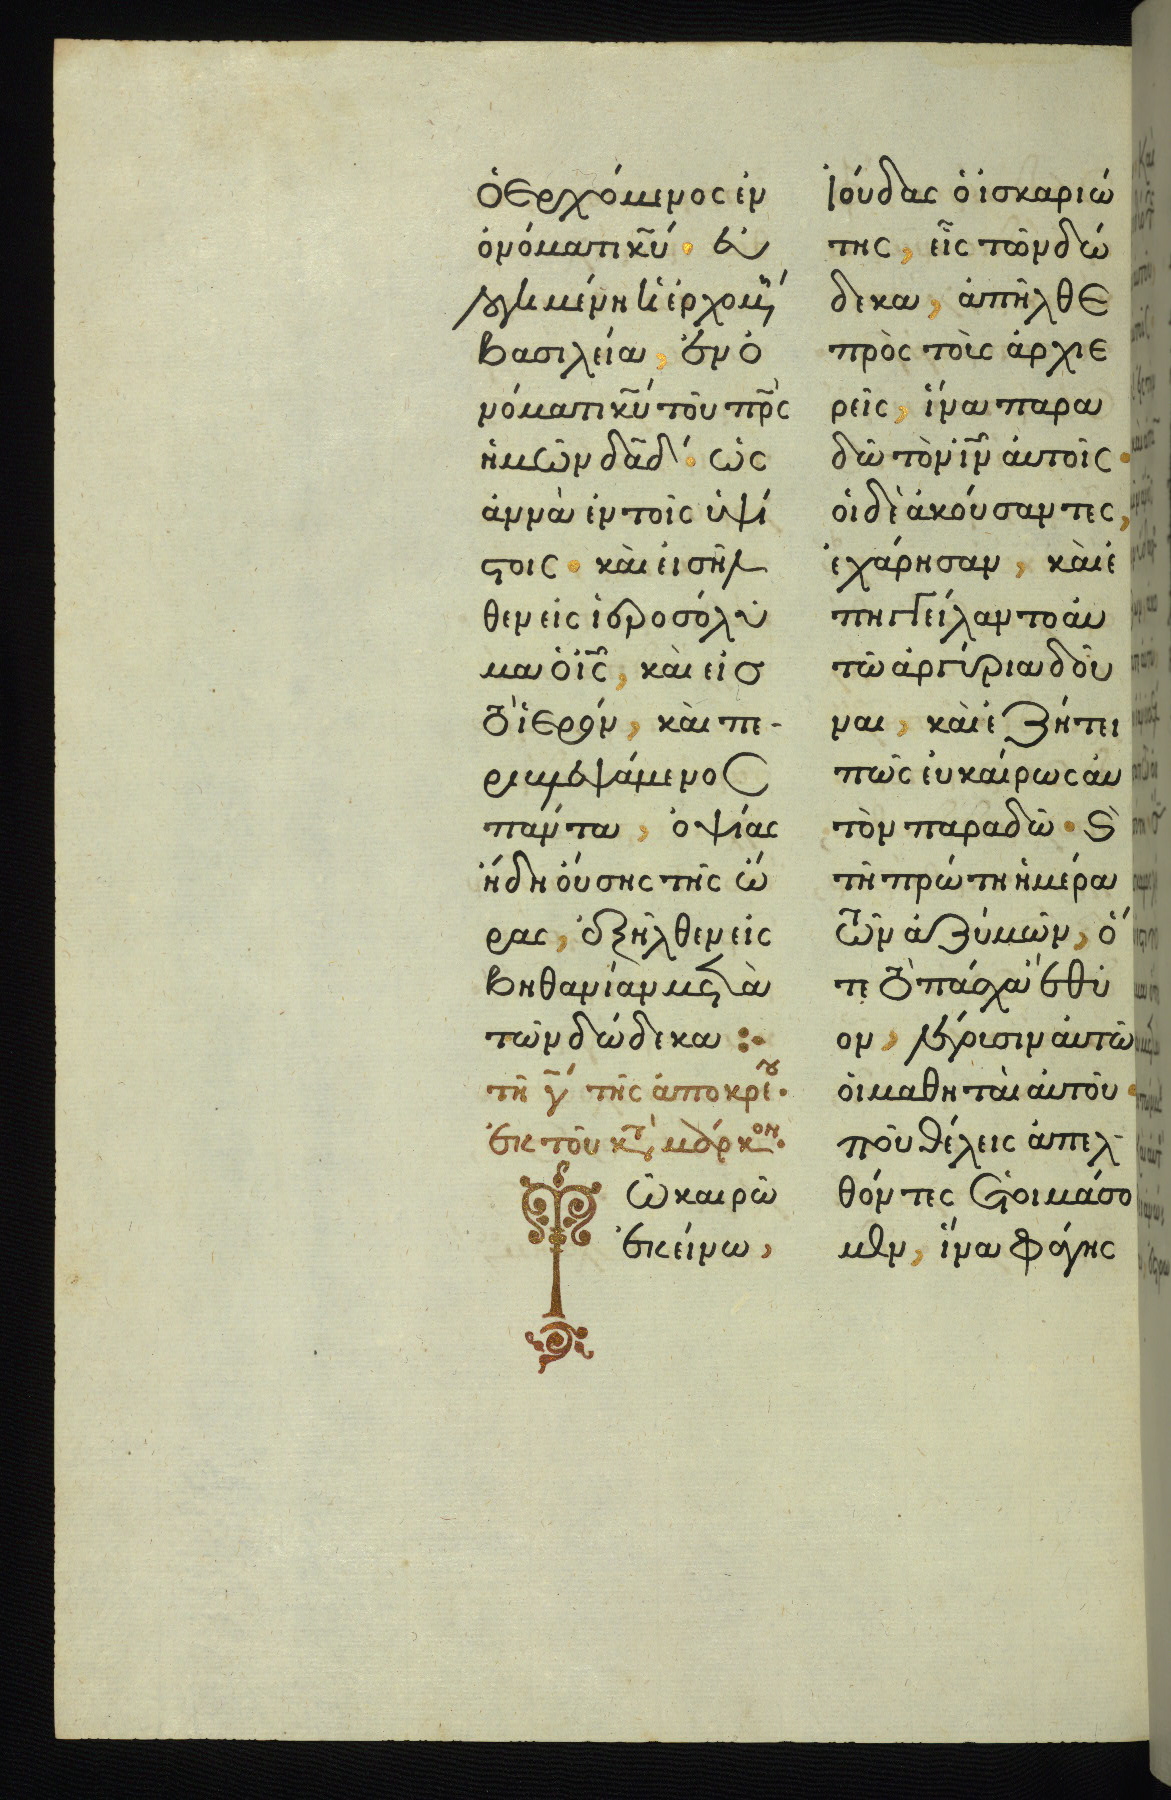 ὁ ερχόμενος ἐν
ὀνόματι κ̅υ̅· ἐυ
λογημένη ἡ ἐρχομένη
βασιλεία, ἐν ὀ
νόματι κ̅υ̅ τοῦ π̅ρ̅ς
ἡμῶν δ̅α̅δ̅· ὡς
ἀννὰ ἐν τοῖς ὑψί
στοις· καὶ εἰσῆλ
θεν εἰς ἱεροσόλυ
μα ὁ ι̅ς̅, καὶ εἰσ
τὸ ἱερόν, καὶ πε-
ριβλεψάμενος
πάντα, ὀψίας
ἤδη ούσης τῆς ὥ
ρας, ἐξῆλθεν εἰς
βηθανίαν μετὰ
τῶν δώδεκα :·
τῆ γ̅ τῆς ἀποκρέου·
ἐκ τοῦ κατὰ μάρκον·
Τῶ καιρῶ
ἐκείνω,
ἰούδας ὁ ἰσκαριώ
της, εἷς τῶν δώ
δεκα, ἀπῆλθε
πρὸς τοὺς ἀρχιε
ρεῖς, ἵνα παρα
δῶ τὸν ι̅ν̅ ἀυτοῖς·
οἱ δὲ ἀκούσαντες,
ἐχάρησαν, καὶ ἐ
πηγγείλαντο ἀυ
τῶ ἀργύρια δοῦ
ναι, καὶ ἐζήτει
πῶς ἐυκαίρως ἀυ
τὸν παραδῶ· καὶ
τῆ πρώτη ἡμέρα
τῶν ἀζύμων, ὅ
τε τὸ πάσχα ἔθυ
ον, λέγουσιν ἀυτῶ
οἱ μαθηταὶ ἀυτοῦ·
ποῦ θέλεις ἀπελ-
θόντες ἑτοιμάσο
μεν, ἵνα φάγης